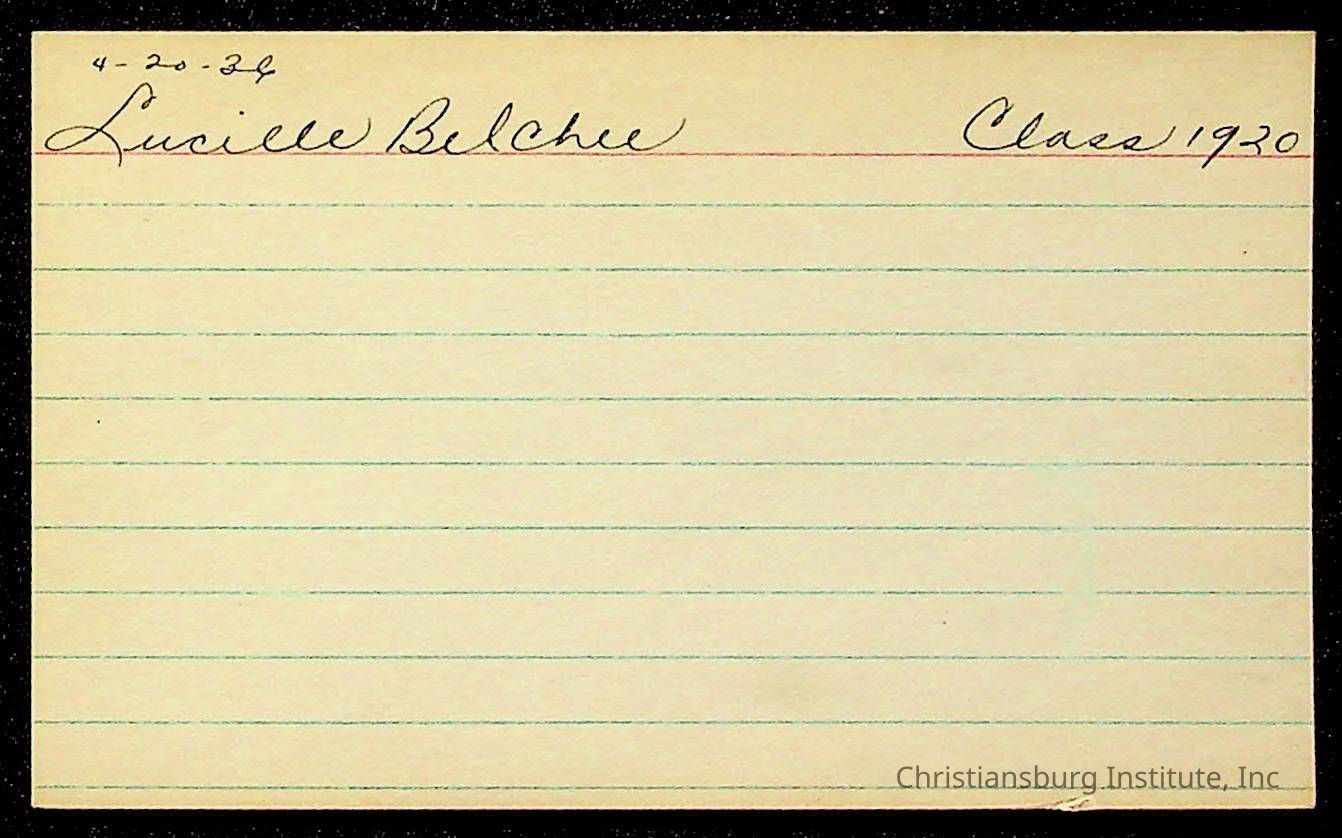 4-20-36
Lucille Belcher Class 1920
Christiansburg Institute, Inc